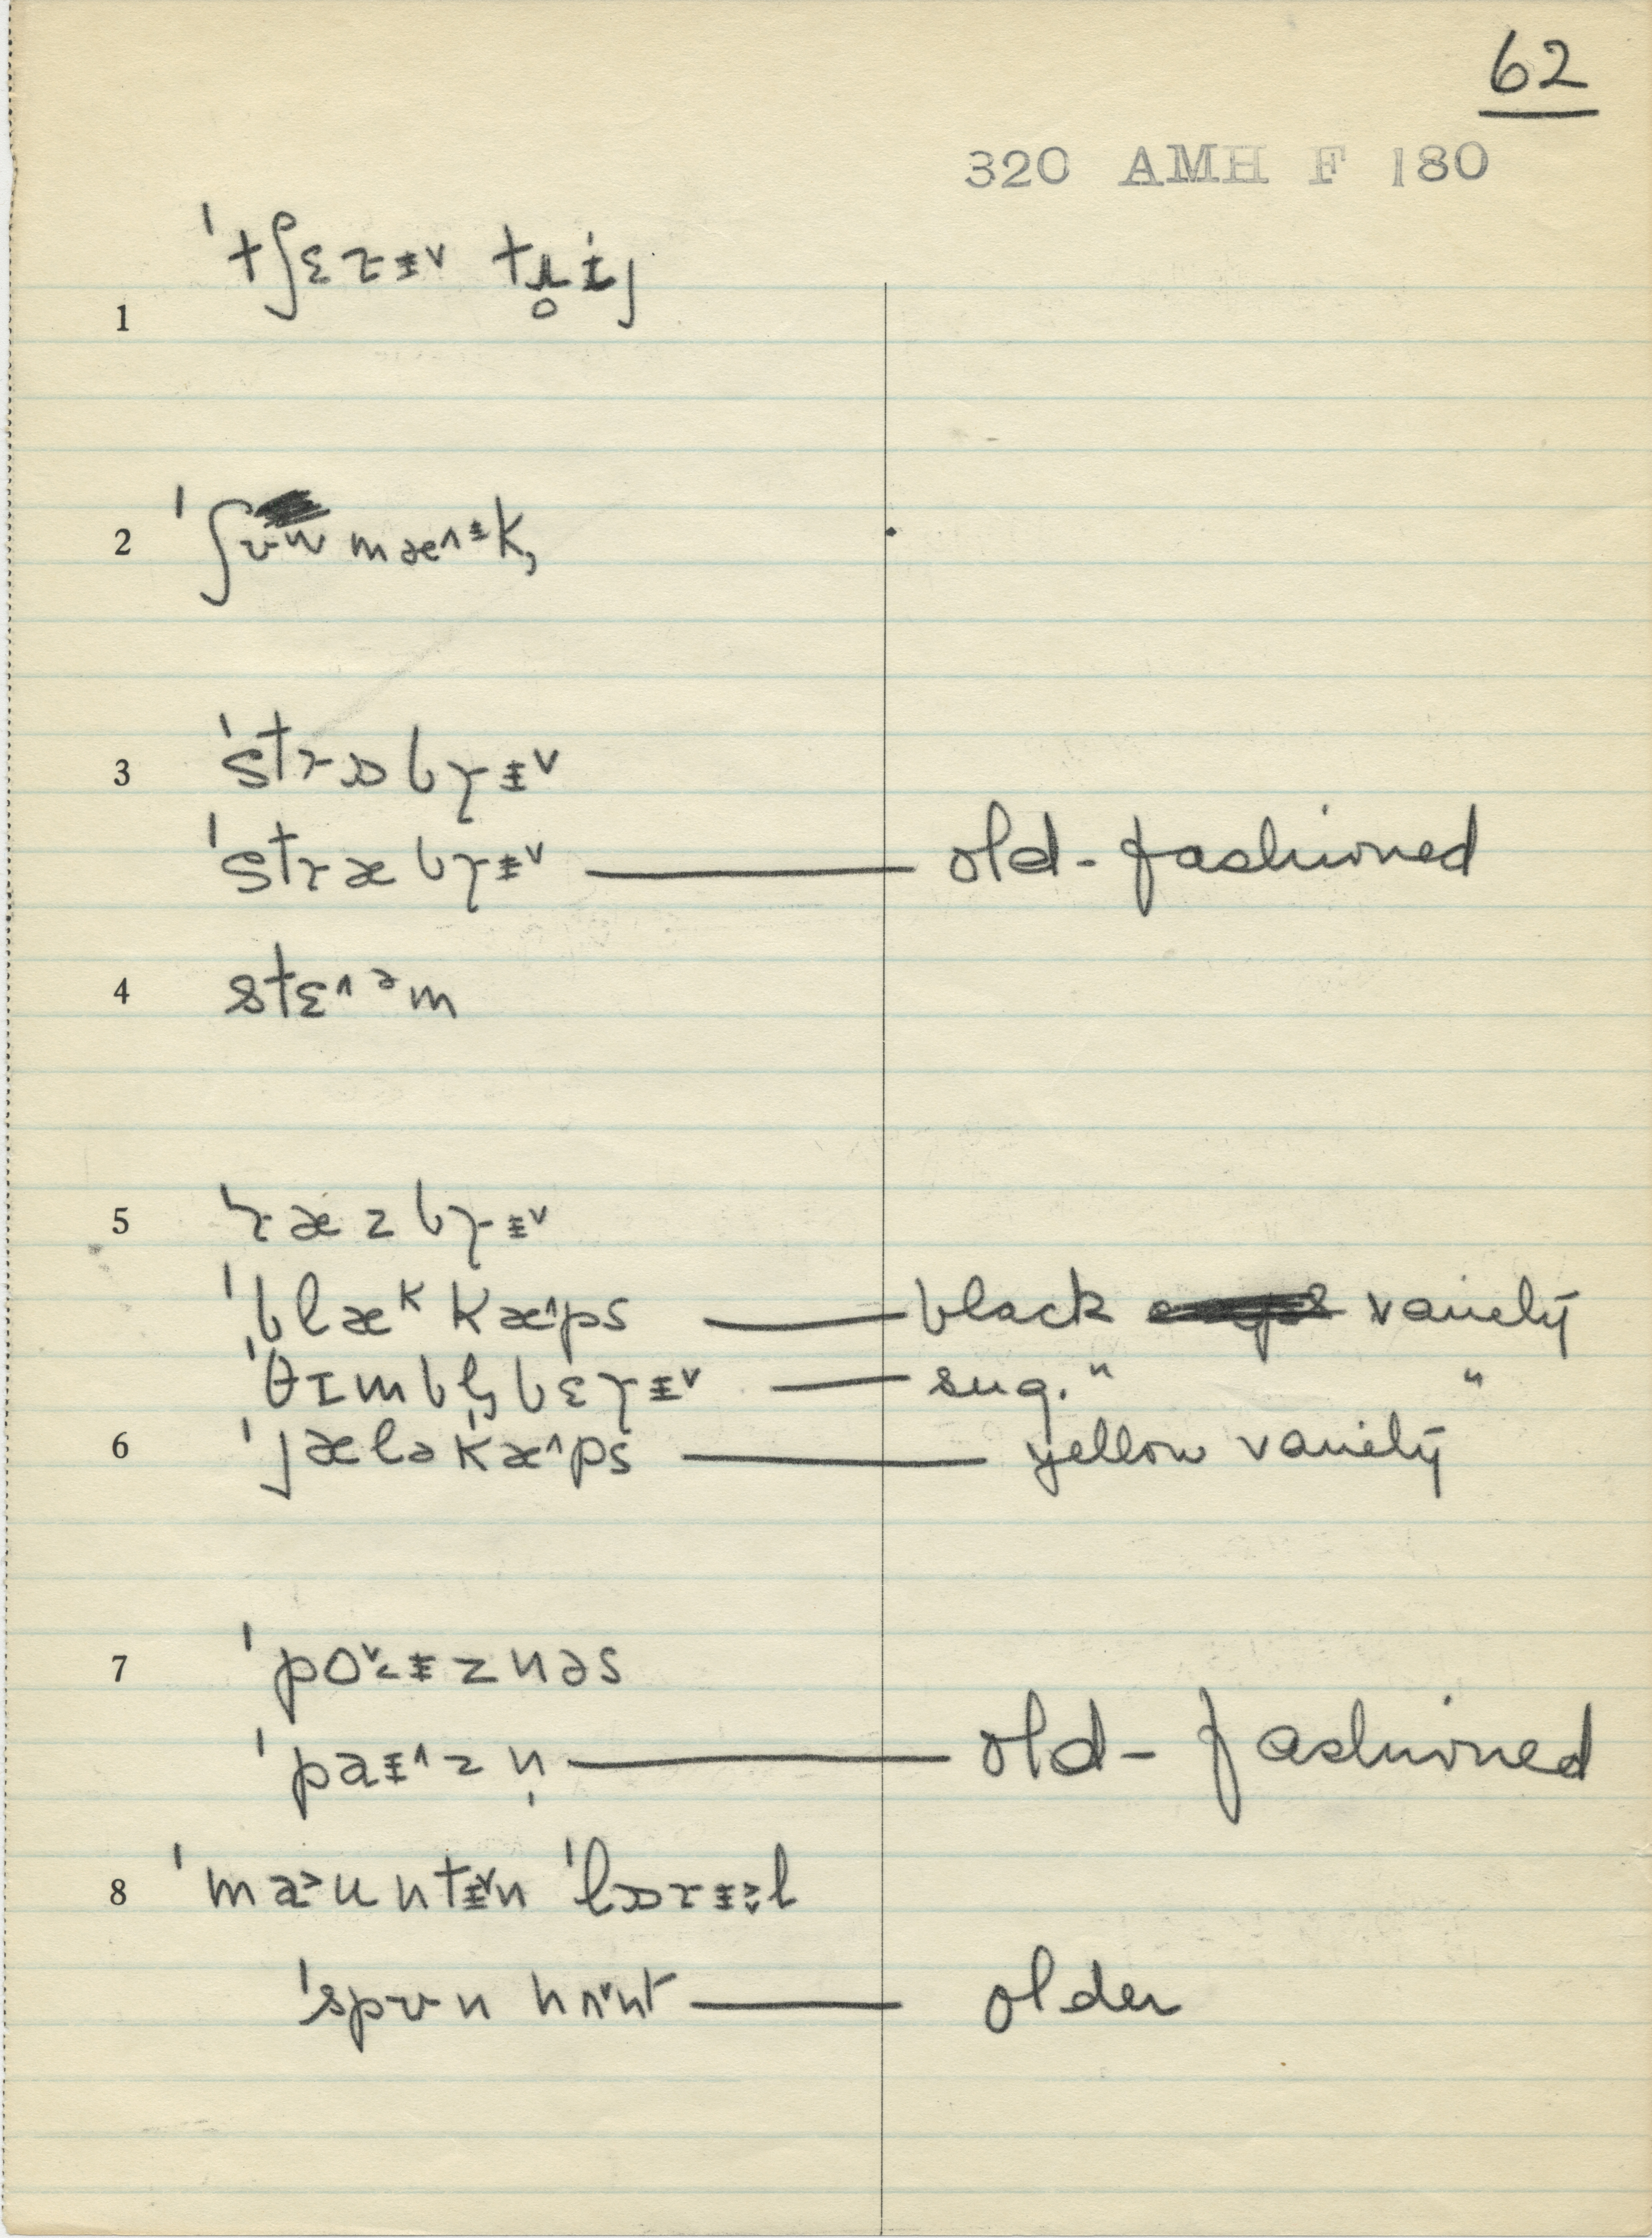 62
320 AMH F 180
1 ˈtʃɛɾɨ˅ tɹ̥ɨj
2 ˈʃʋmæ˄ᵻk,
3 ˈstɾɒbɤɨ˅
ˈstɾæbɤɨ˅ — old-fashioned
4 stɛ˄ᵊm
5 ˈɾæzbɤɨ˅
ˈblæᵏkæ˄ps — black variety
ˈθɪmbl̩bɛɤɨ˅ — sug. " "
6 ˈjæləˌkæ˄ps — yellow variety
7 ˈpɔ˅ɨznəs
ˈpaɨ˄zn̩ — old-fashioned
8 ˈma˃ʊntɨ˅n ˈlɒɾɨl
ˈspʋn hʌ˅nt — older